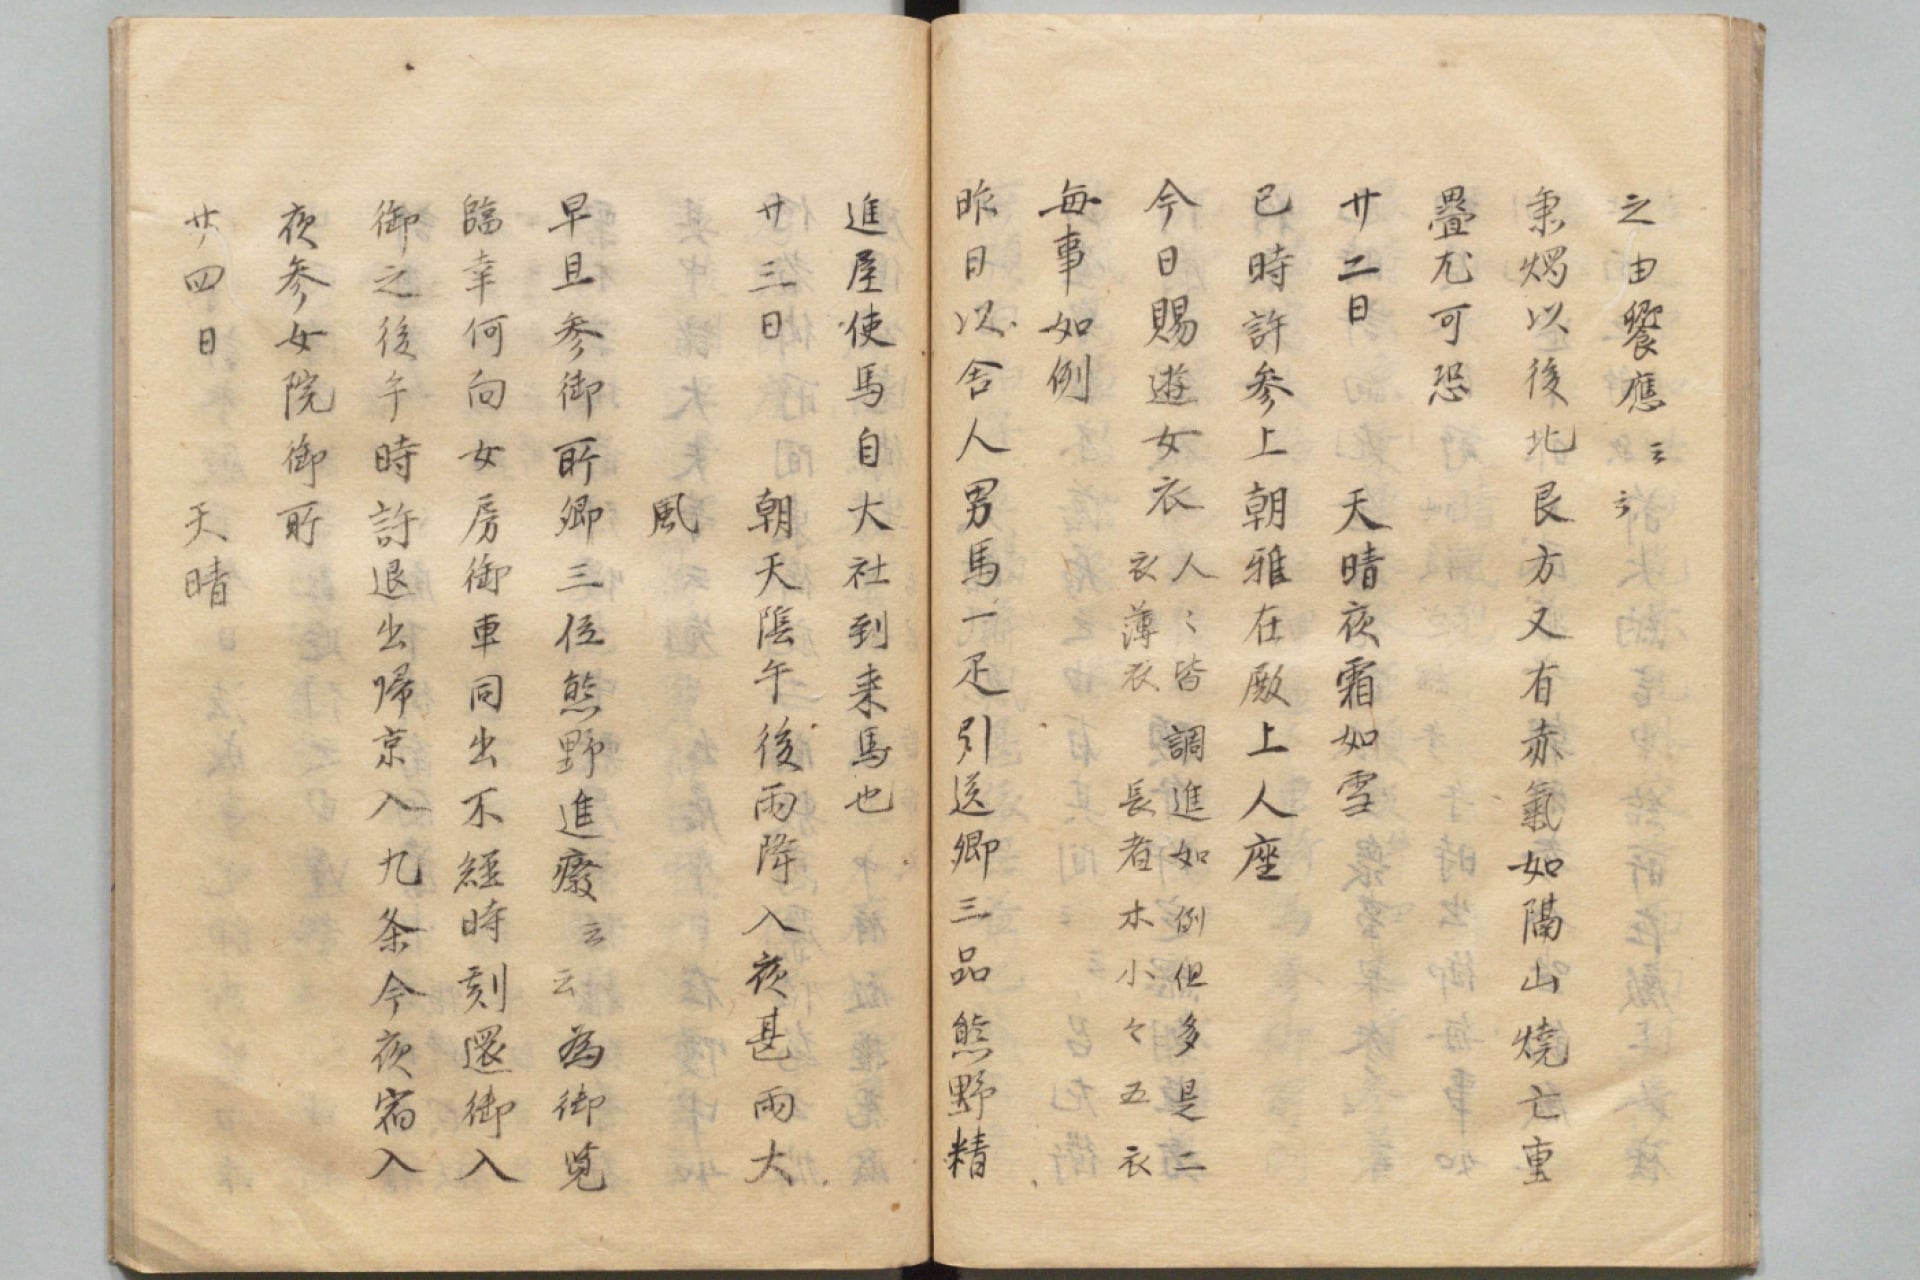 之由饗應云云
秉燭以後北艮方又有赤氣如隔山燒亡重
疊尤可恐
廿二日　天晴夜霜如雪
巳時許参上朝雅在殿上人座
今日賜遊女衣人〻皆調進如例但多是二
衣薄衣長者木小々五衣
每事如例
昨日以舍人男馬一疋引送卿三品熊野精
進屋使馬自大社到来馬也
廿三日　朝天陰午後雨降入夜甚雨大
風
早旦参御所卿三位熊野進癈云云為御覧
臨幸何向女房御車同出不經時刻還御入
御之後午時許退出帰京入九条今夜宿入
夜参女院御所
廿四日　天晴